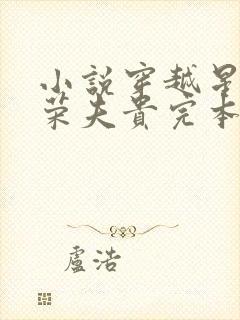 小說穿越呈
荣夫貴完本
盧浩